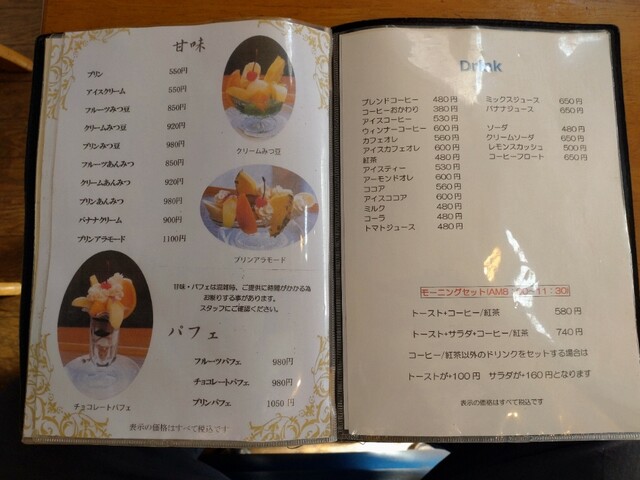 甘味
プリン 550円
アイスクリーム 550円
フルーツみつ豆 850円
クリームみつ豆 920円
プリンみつ豆 980円
フルーツあんみつ 850円
クリームあんみつ 920円
プリンあんみつ 980円
バナナクリーム 900円
プリンアラモード 1100円
クリームみつ豆
プリンアラモード
甘味・パフェは混雑時、ご提供に時間がかかる為
お断りする事があります。
スタッフにご確認ください。
パフェ
フルーツパフェ 980円
チョコレートパフェ 980円
プリンパフェ 1050円
チョコレートパフェ
表示の価格はすべて税込です
Drink
ブレンドコーヒー 480円
コーヒーおかわり 380円
アイスコーヒー 530円
ウィンナーコーヒー 600円
カフェオレ 560円
アイスカフェオレ 600円
紅茶 480円
アイスティー 530円
アーモンドオレ 600円
ココア 560円
アイスココア 600円
ミルク 480円
コーラ 480円
トマトジュース 480円
ミックスジュース 650円
バナナジュース 650円
ソーダ 480円
クリームソーダ 650円
レモンスカッシュ 500円
コーヒーフロート 650円
モーニングセット(AM8:00~11:30)
トースト・コーヒー/紅茶 580円
トースト・サラダ・コーヒー/紅茶 740円
コーヒー/紅茶以外のドリンクをセットする場合は
トーストが+100円 サラダが+160円となります
表示の価格はすべて税込です